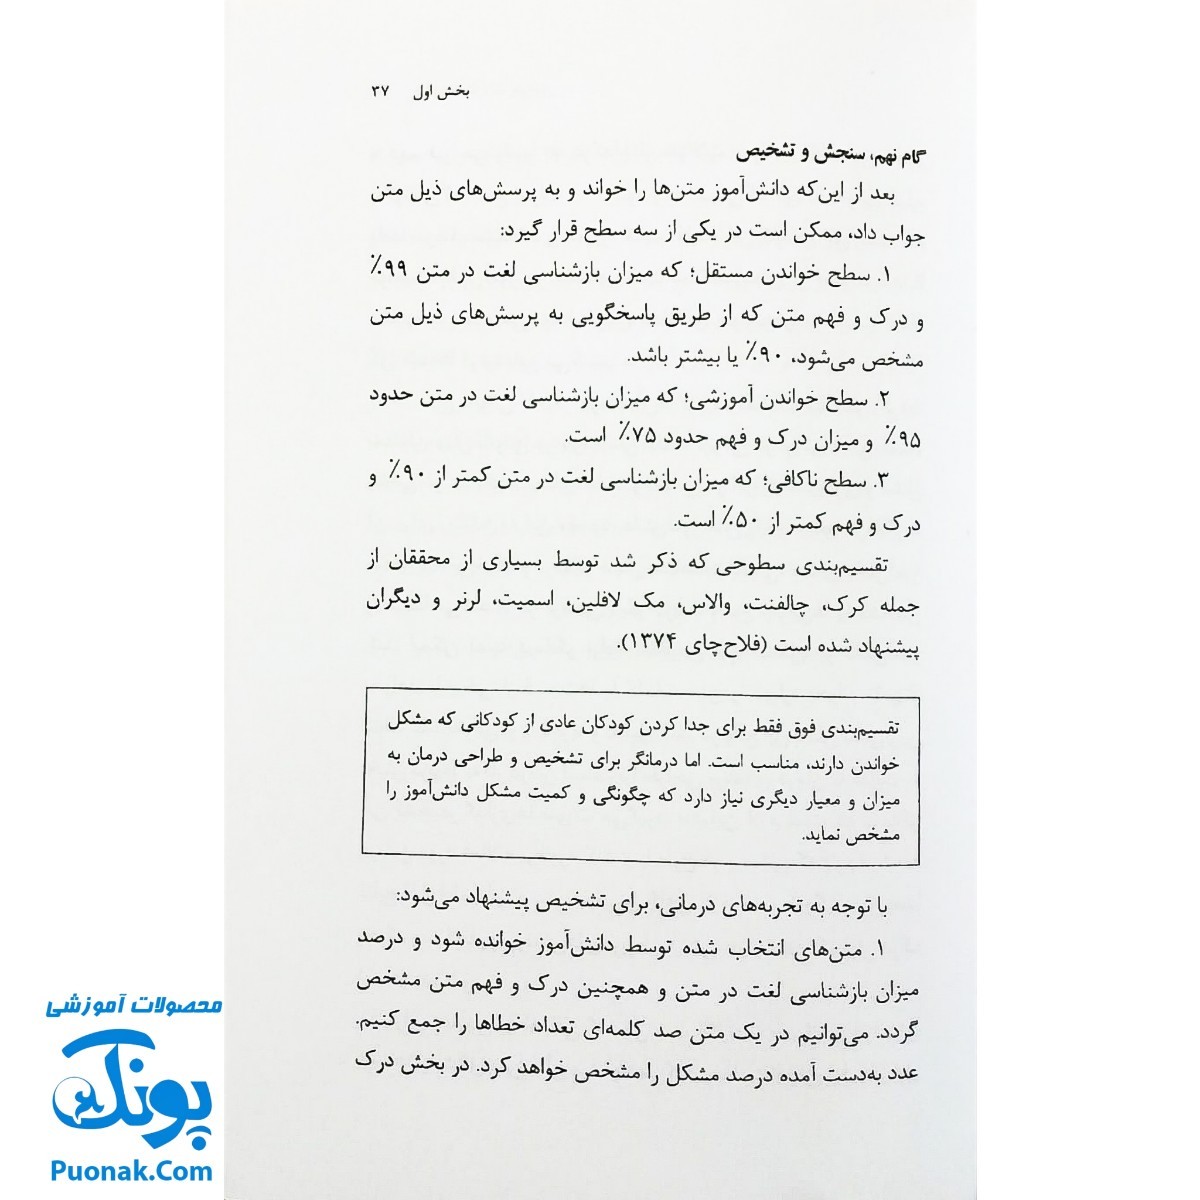 بخش اول ۳۷
گام نهم، سنجش و تشخیص
بعد از این‌که دانش‌آموز متن‌ها را خواند و به پرسش‌های ذیل متن
جواب داد، ممکن است در یکی از سه سطح قرار گیرد:
۱. سطح خواندن مستقل؛ که میزان بازشناسی لغت در متن ۹۹٪
و درک و فهم متن که از طریق پاسخگویی به پرسش‌های ذیل متن
مشخص می‌شود، ۹۰٪ یا بیشتر باشد.
۲. سطح خواندن آموزشی؛ که میزان بازشناسی لغت در متن حدود
۹۵٪ و میزان درک و فهم حدود ۷۵٪ است.
۳. سطح ناکافی؛ که میزان بازشناسی لغت در متن کمتر از ۹۰٪ و
درک و فهم کمتر از ۵۰٪ است.
تقسیم‌بندی سطوحی که ذکر شد توسط بسیاری از محققان از
جمله کرک، چالفنت، والاس، مک لافلین، اسمیت، لرنر و دیگران
پیشنهاد شده است (فلاح‌چای ۱۳۷۴).
تقسیم‌بندی فوق فقط برای جدا کردن کودکان عادی از کودکانی که مشکل
خواندن دارند، مناسب است. اما درمانگر برای تشخیص و طراحی درمان به
میزان و معیار دیگری نیاز دارد که چگونگی و کمیت مشکل دانش‌آموز را
مشخص نماید.
با توجه به تجربه‌های درمانی، برای تشخیص پیشنهاد می‌شود:
۱. متن‌های انتخاب شده توسط دانش‌آموز خوانده شود و درصد
میزان بازشناسی لغت در متن و همچنین درک و فهم متن مشخص
گردد. می‌توانیم در یک متن صد کلمه‌ای تعداد خطاها را جمع کنیم.
عدد به‌دست آمده درصد مشکل را مشخص خواهد کرد. در بخش درک
محصولات آموزشی
پونک
Puonak.Com